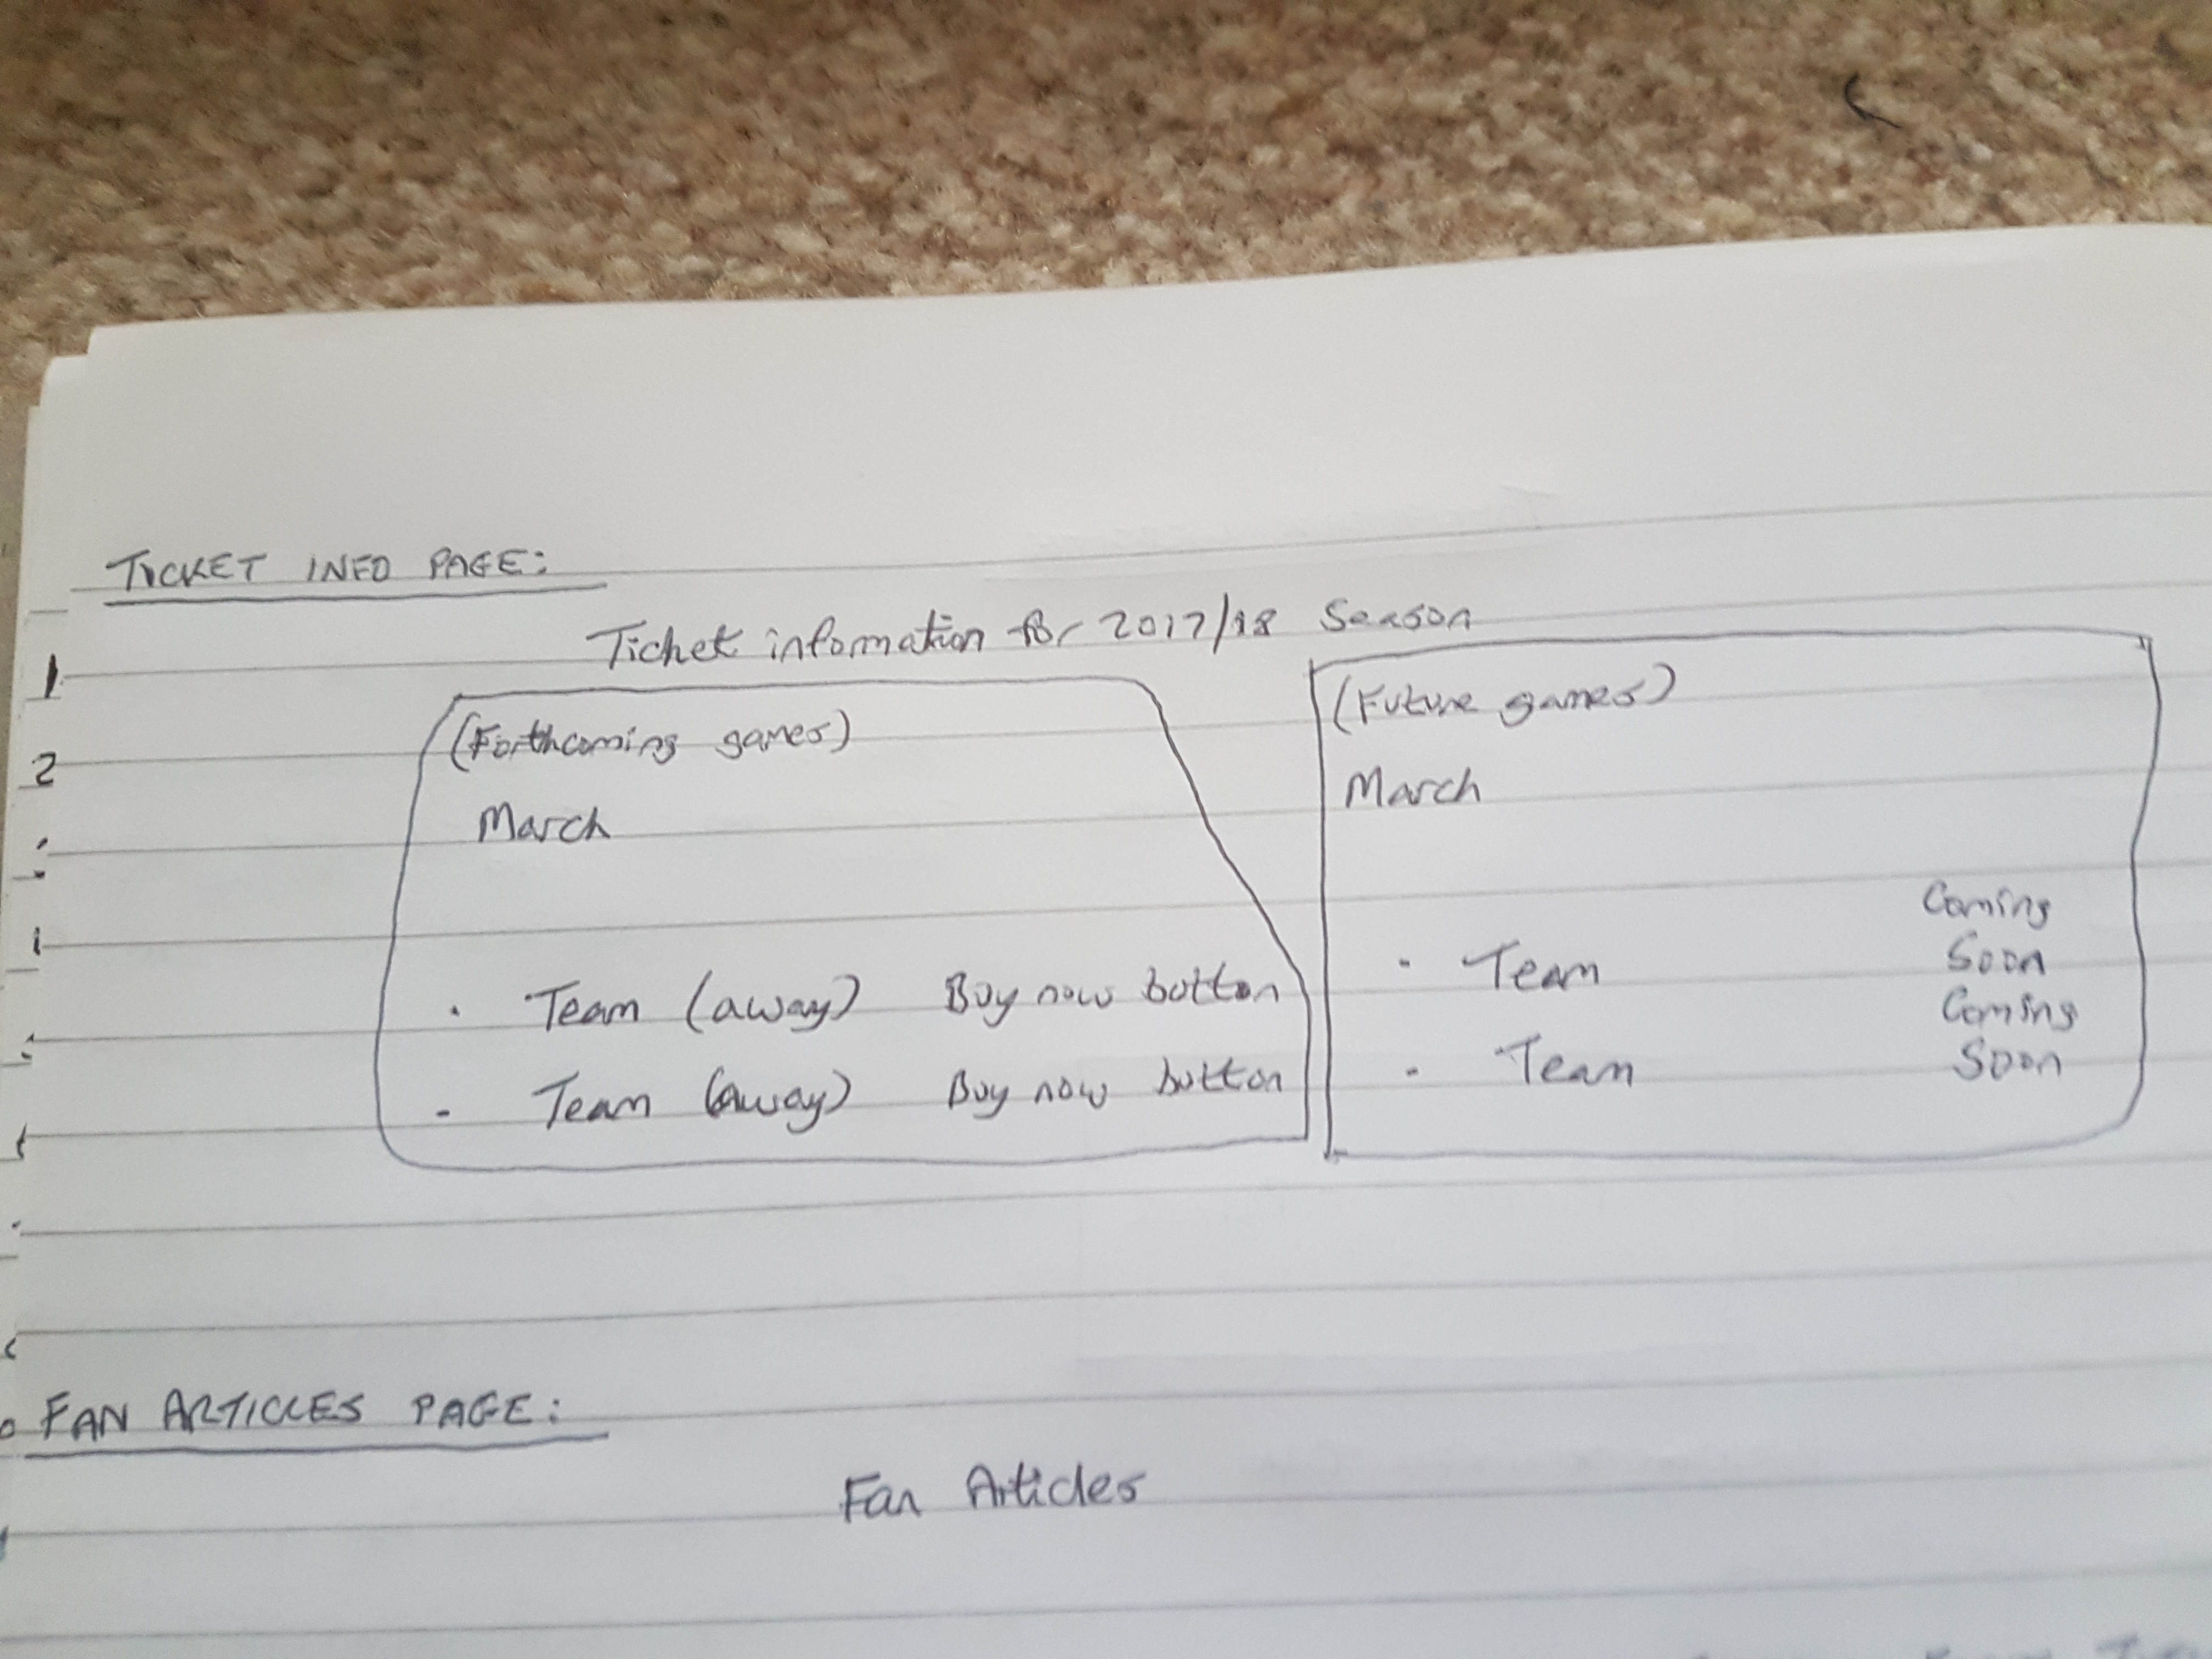 TICKET INFO PAGE:
Ticket information for 2017/18 Season
(Forthcoming games)
March
· Team (away) Buy now button
· Team (away) Buy now button
(Future games)
March
· Team Coming
Soon
· Team Coming
Soon
FAN ARTICLES PAGE:
Fan Articles